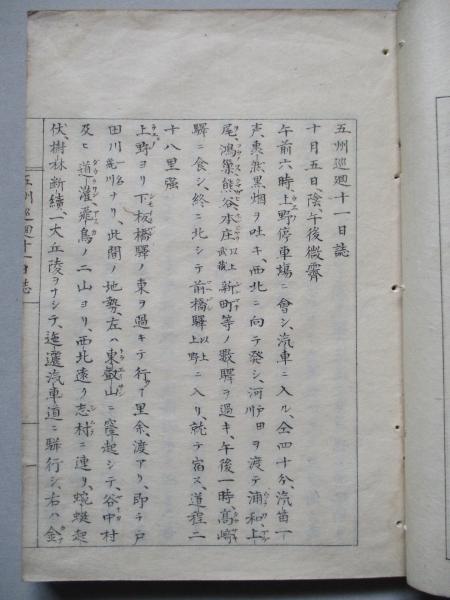 五州巡廻十一日誌
十月五日陰、午後微霽
午前六時、上野停車場ニ會シ、汽車ニ入ル、仝四十分、汽笛一
声、煑然黒烟ヲ吐キ、西北ニ向テ發シ、河ヲ渡テ浦和上
尾、鴻巣熊谷本庄以上武藏新町等ノ數驛ヲ過キ、午後一時、高崎
驛ニ食シ、終ニ北シテ前橋驛以上上野ニ入リ、就テ宿ス、道程二
十八里强
上野ヨリ下板橋驛ノ東ヲ過キテ行一里余、渡アリ、即チ戸
田川一名荒川ナリ、此間ノ地勢、左ハ東叡山ニ窿起シテ、谷中村
及ヒ道灌飛鳥ノ二山ヨリ、西北遠ク志村ニ連リ、蜿蜒起
伏、樹林断續、一大丘陵ヲナシテ、迤邐汽車道ニ駢行シ、右ハ金
五州巡廻十一日誌